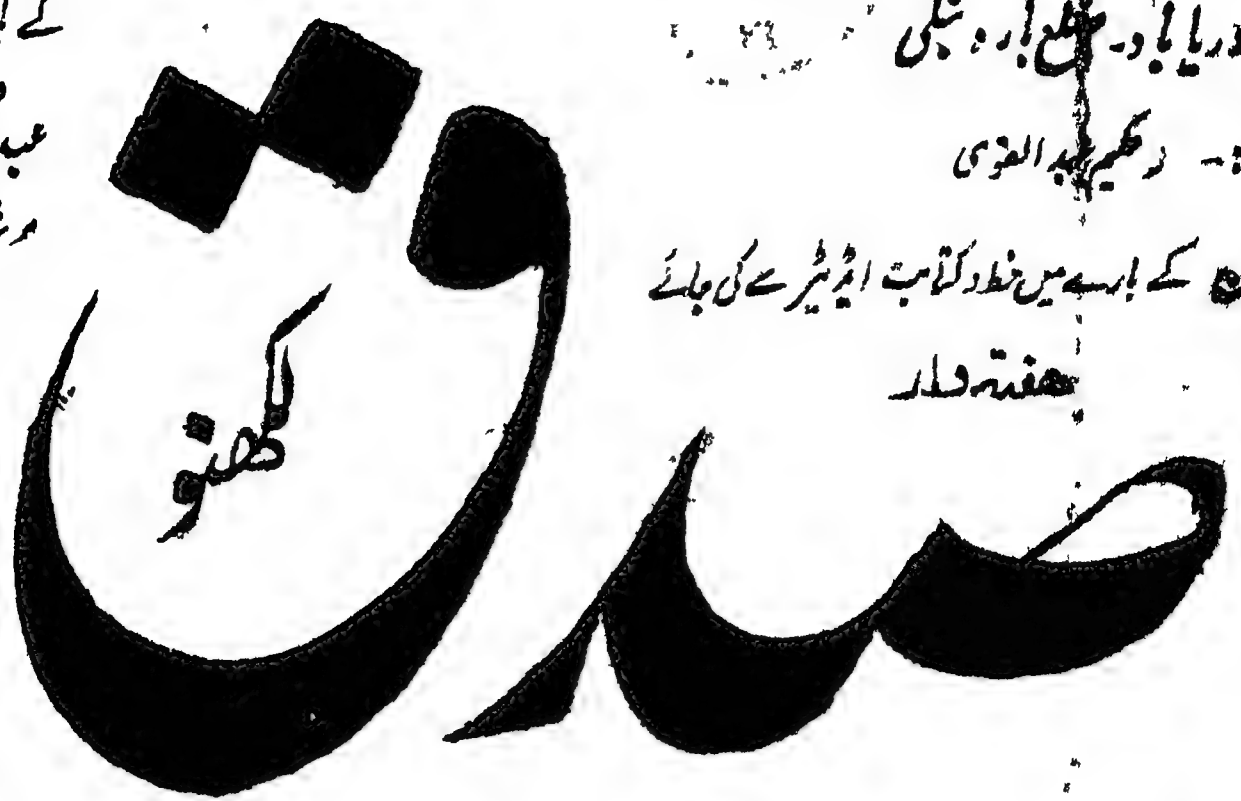 دریاباد۔ ضلع بارہ بنکی
حکیم عبد القوی
کے بارے میں خط و کتابت ایڈیٹر سے کی جائے
ہفتہ وار
صدق
لکھنؤ